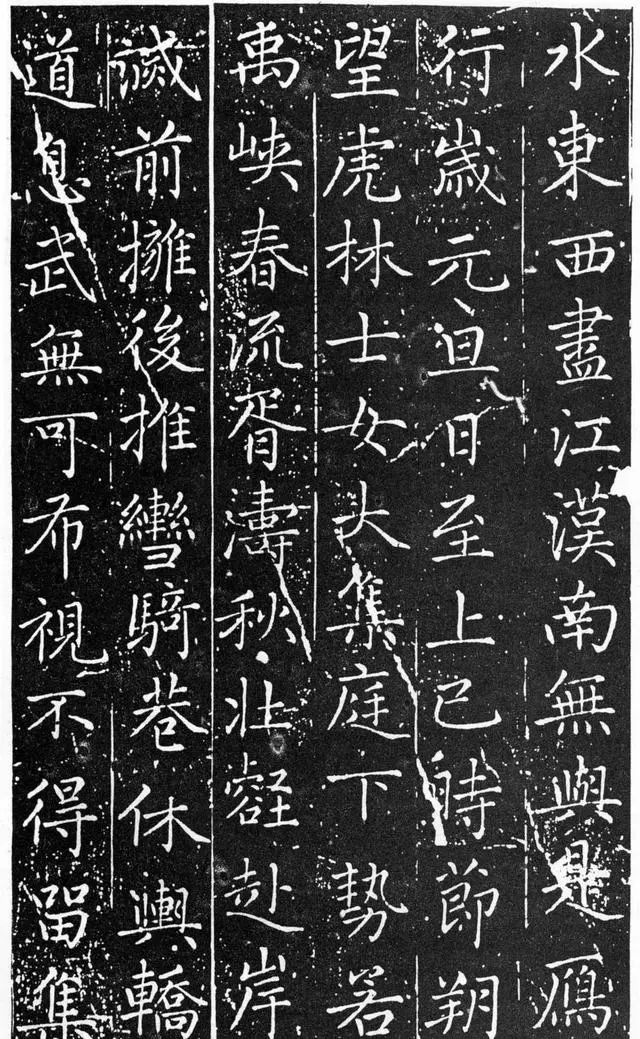 水東西盡江漢南無與是雁
行歲元旦日至上巳時節朔
望虎林士女大集庭下勢若
禹峽春流胥濤秋壯壑赴岸
滅前擁後推轡騎巷休輿轎
道息武無可布視不得留集